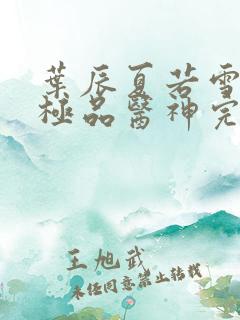 葉辰夏若雪
極品醫神完
王旭武
未经同意禁止转载